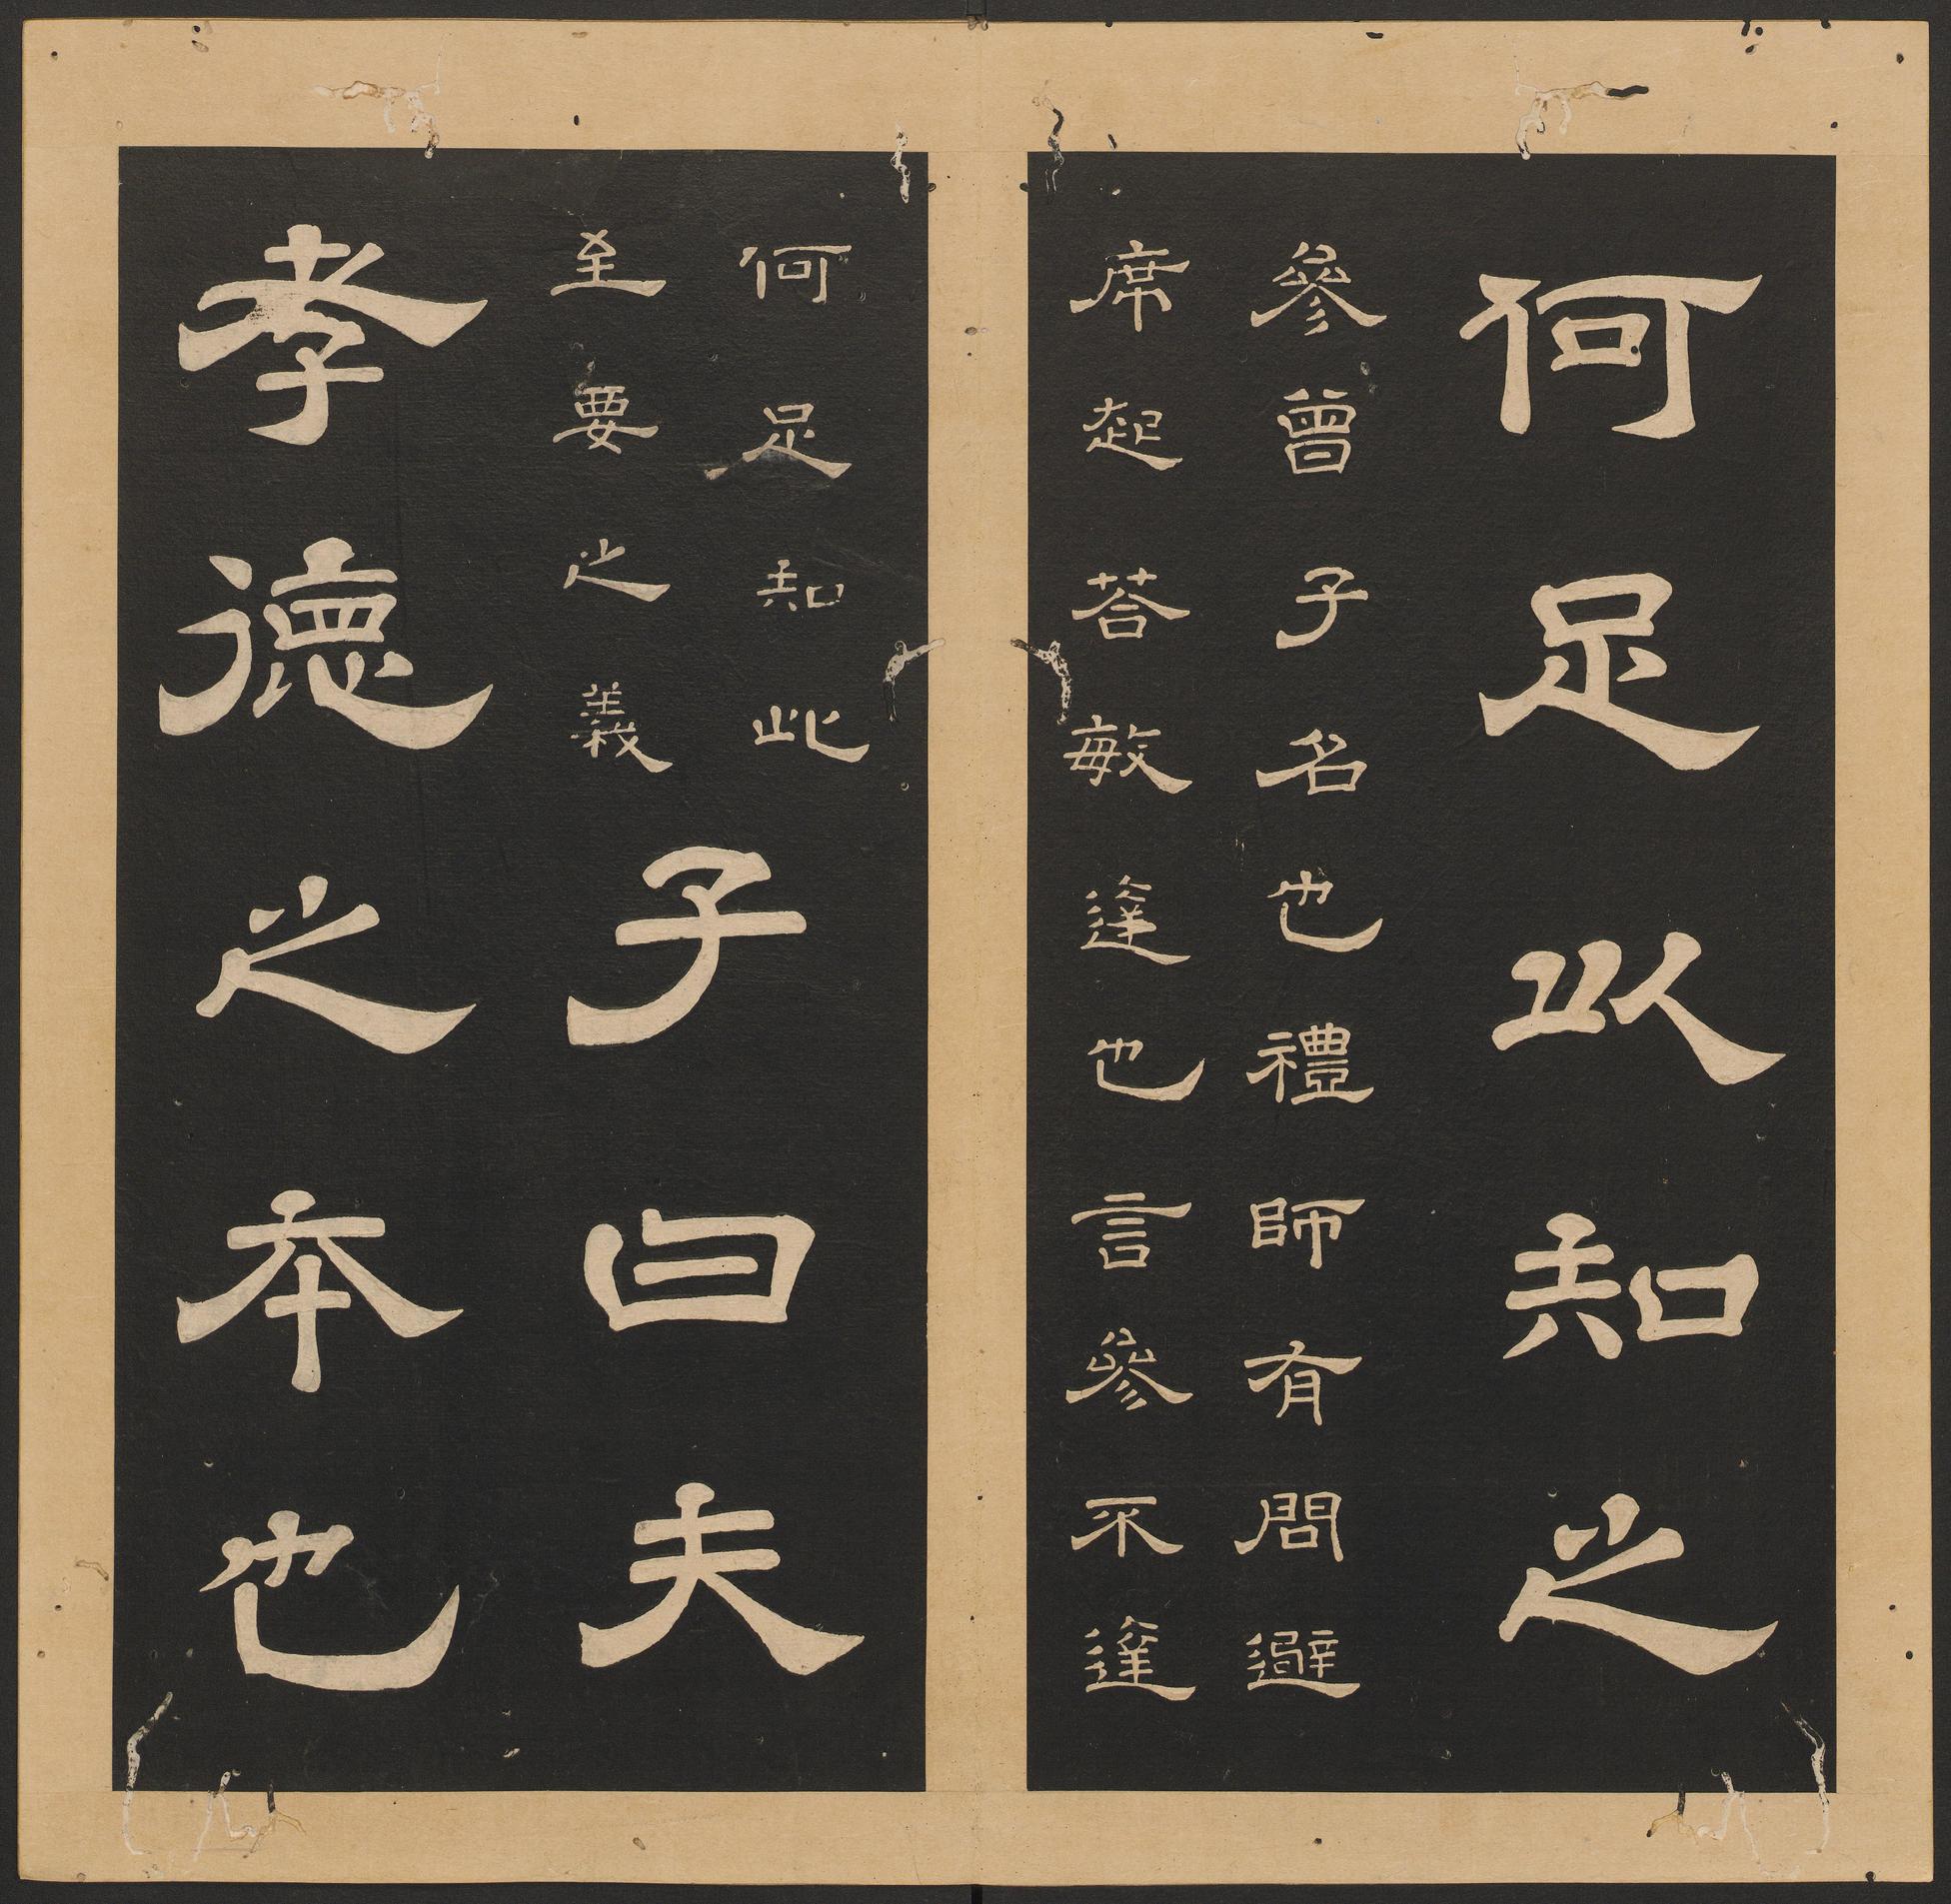 何足以知之
參曾子名也禮師有問避
席起荅敏達也言參不達
何足知此
至要之義
子曰夫
孝德之本也